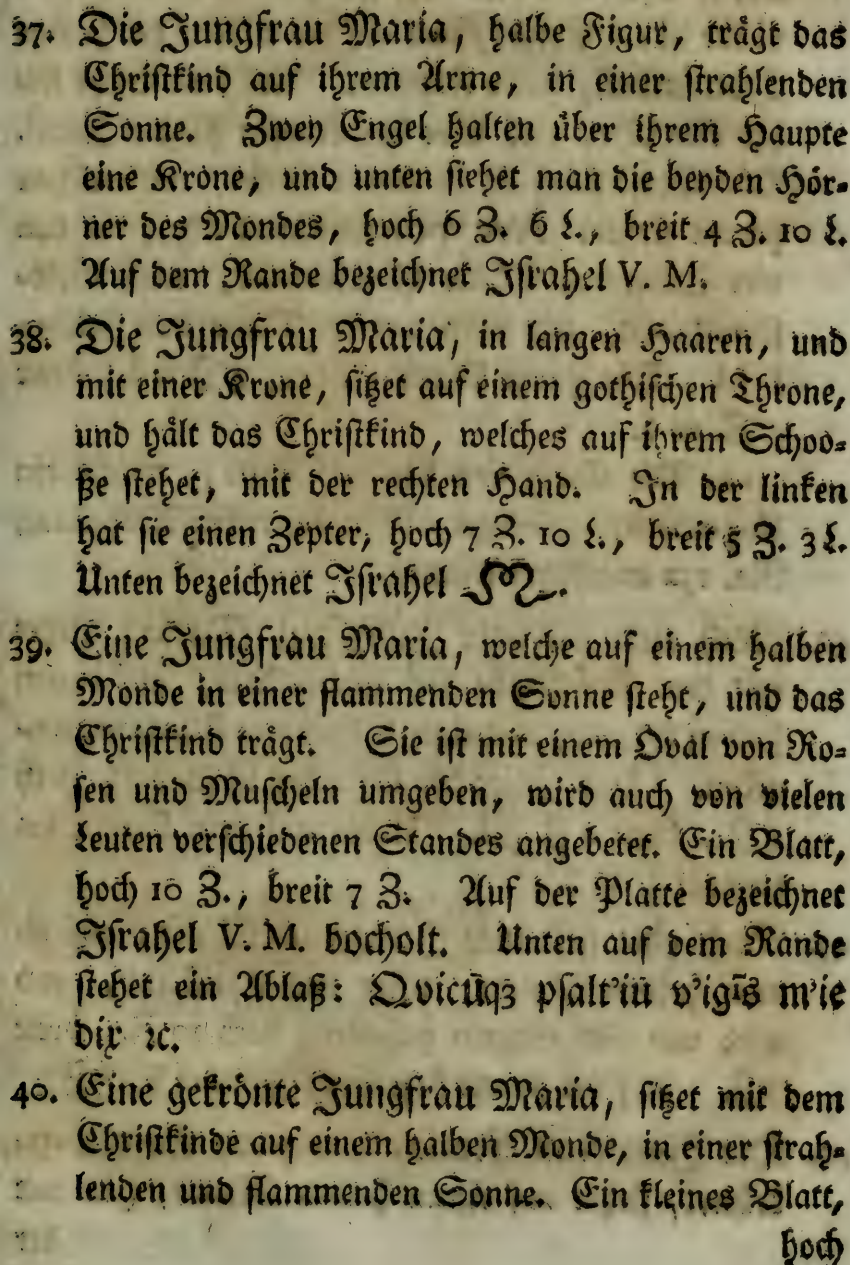 37. Die Jungfrau Maria, halbe Figur, trägt das
Christkind auf ihrem Arme, in einer strahlenden
Sonne. Zwey Engel halten über ihrem Haupte
eine Krone, und unten siehet man die beyden Hör-
ner des Mondes, hoch 6 Z. 6 L., breit 4 Z. 10 L.
Auf dem Rande bezeichnet Israhel V. M.
38. Die Jungfrau Maria, in langen Haaren, und
mit einer Krone, sitzet auf einem gothischen Throne,
und hält das Christkind, welches auf ihrem Schoo-
ße stehet, mit der rechten Hand. In der linken
hat sie einen Zepter, hoch 7 Z. 10 L., breit 5 Z. 3 L.
Unten bezeichnet Israhel
39. Eine Jungfrau Maria, welche auf einem halben
Monde in einer flammenden Sonne steht, und das
Christkind trägt. Sie ist mit einem Oval von Ro-
sen und Muscheln umgeben, wird auch von vielen
Leuten verschiedenen Standes angebetet. Ein Blatt,
hoch 10 Z., breit 7 Z. Auf der Platte bezeichnet
Israhel V. M. bocholt. Unten auf dem Rande
stehet ein Ablaß: Qvicūqz psalt'iū v'igīs m'ie
dix ꝛc.
40. Eine gekrönte Jungfrau Maria, sitzet mit dem
Christkinde auf einem halben Monde, in einer strah-
lenden und flammenden Sonne. Ein kleines Blatt,
hoch